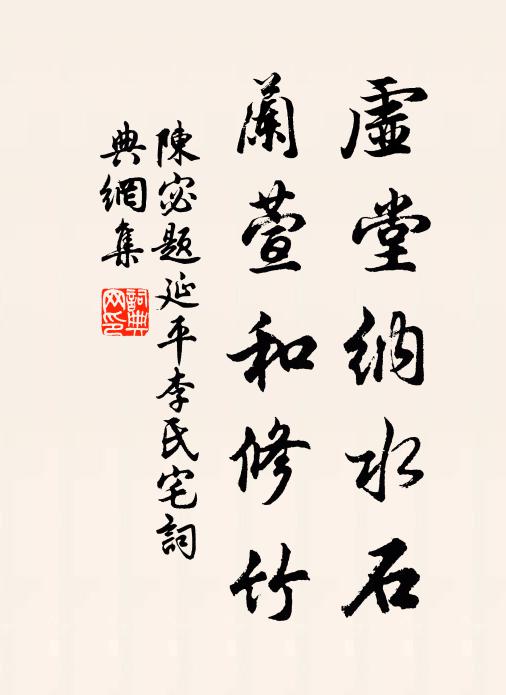 虛堂納水石
蘭萱和修竹
陳宓題延平李氏宅詞
典網集
詞典網印